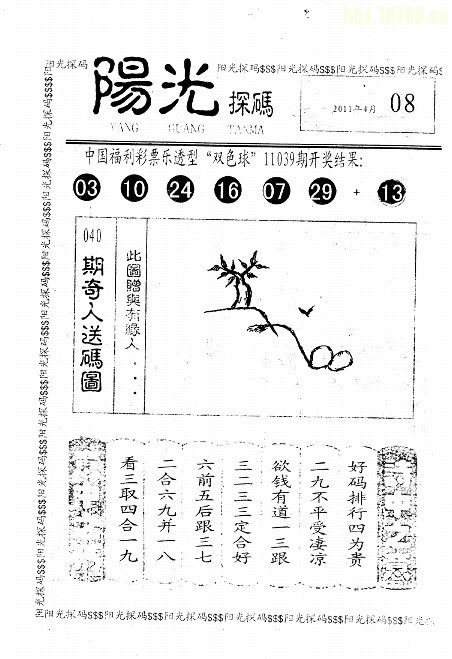 bbs.16788.cn
阳光探码
阳光探码$$$阳光探码$$$阳光探码$$$阳光探码$
陽光 探碼
YANG GUANG TANMA
2011年4月 08
中国福利彩票乐透型“双色球”11039期开奖结果:
03 10 24 16 07 29 + 13
040
期奇人送碼圖
此圖贈與有緣人...
好码排行四为贵
二九不平受凄凉
欲钱有道一三跟
三二三三定合好
六前五后跟三七
二合六九并一八
看三取四合一九
阳光探码$$$阳光探码$$$阳光探码$$$阳光探码$$$阳光探码$$$阳光探码$$$阳光探码